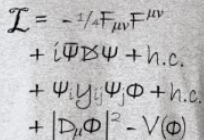 ℒ = -1/4 F_μν F^μν
+ iΨ̅D̸Ψ + h.c.
+ Ψ_i y_ij Ψ_j Φ + h.c.
+ |D_μΦ|² - V(Φ)